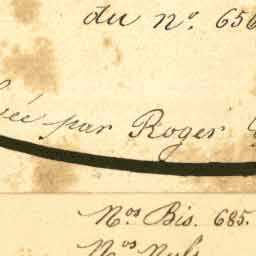 du nº. 656
par Roger
Nos Bis. 685.
Nos Nuls